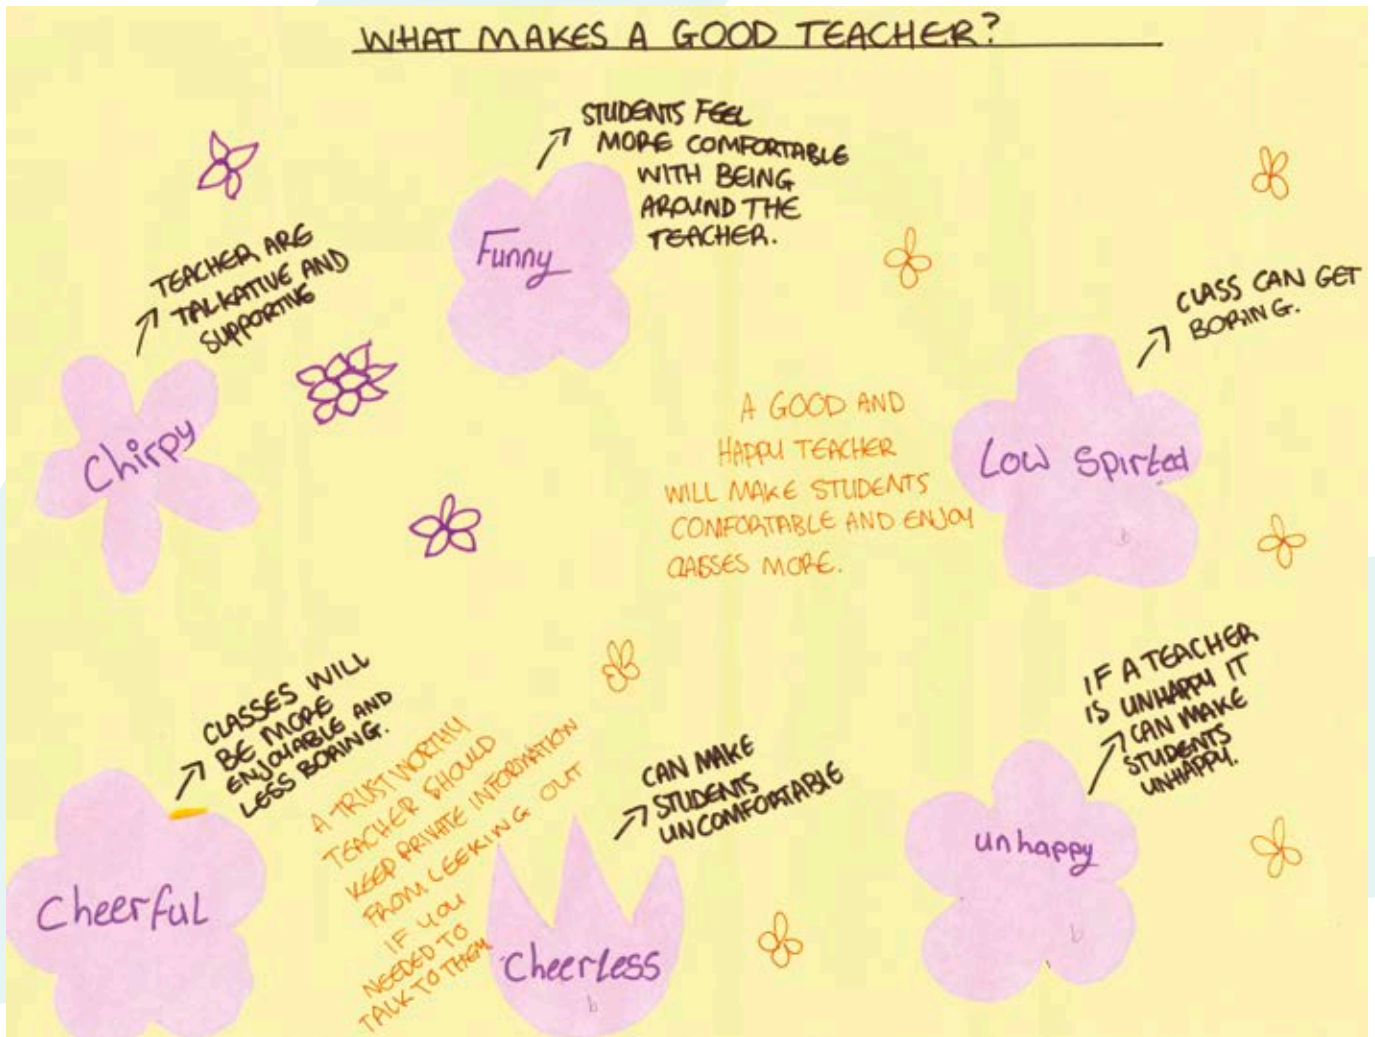 WHAT MAKES A GOOD TEACHER?
STUDENTS FEEL
MORE COMFORTABLE
WITH BEING
AROUND THE
TEACHER.
Funny
TEACHER ARE
TALKATIVE AND
SUPPORTIVE
Chirpy
CLASS CAN GET
BORING.
Low Spirted
A GOOD AND
HAPPY TEACHER
WILL MAKE STUDENTS
COMFORTABLE AND ENJOY
CLASSES MORE.
CLASSES WILL
BE MORE
ENJOYABLE AND
LESS BORING.
Cheerful
A TRUSTWORTHY
TEACHER SHOULD
KEEP PRIVATE INFORMATION
FROM LEEKING OUT
IF YOU
NEEDED TO
TALK TO THEM
CAN MAKE
STUDENTS
UNCOMFORTABLE
Cheerless
b
IF A TEACHER
IS UNHAPPY IT
CAN MAKE
STUDENTS
UNHAPPY.
unhappy
b
b